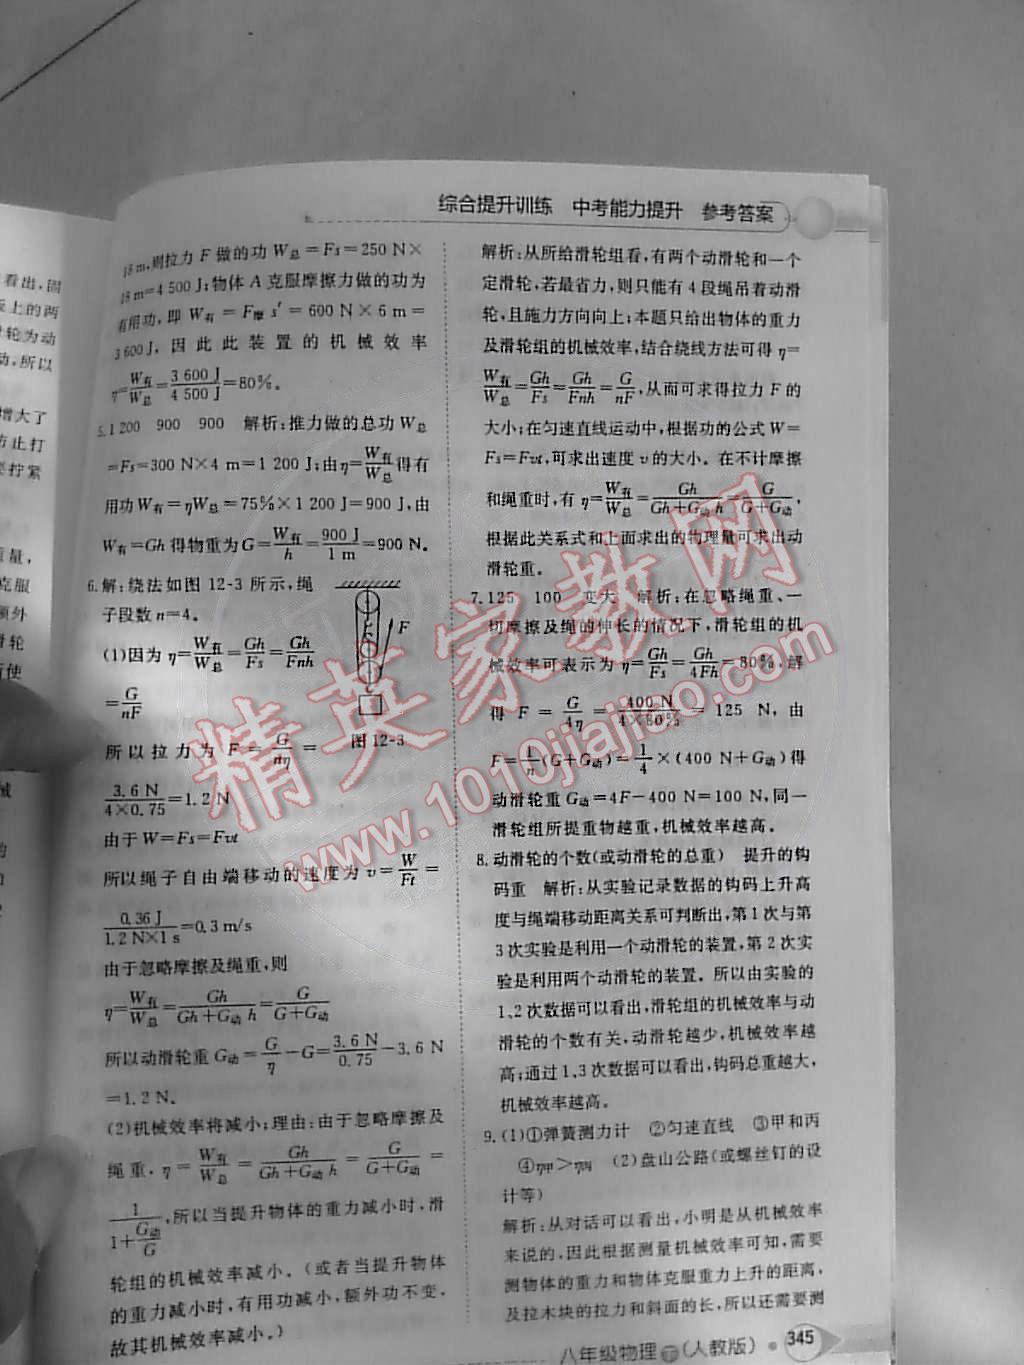 综合提升训练 中考能力提升 参考答案
看出,固
板上的两
滑轮为动
动,所以
增大了
防止打
拧紧
重量,
克服
额外
滑轮
使
18 m,则拉力 F 做的功 W总=Fs=250 N×
18 m=4 500 J;物体 A 克服摩擦力做的功为
有用功,即 W有=F摩 s′=600 N×6 m=
3 600 J,因此此装置的机械效率
η=W有/W总=3 600 J/4 500 J=80%。
5.1 200 900 900 解析:推力做的总功 W总
=Fs=300 N×4 m=1 200 J;由 η=W有/W总得有
用功 W有=ηW总=75%×1 200 J=900 J,由
W有=Gh 得物重为 G=W有/h=900 J/1 m=900 N。
6.解:绕法如图 12-3 所示,绳
子段数 n=4。
(1)因为 η=W有/W总=Gh/Fs=Gh/Fnh
=G/nF
所以拉力为 F=G/nη=
3.6 N/4×0.75=1.2 N
由于 W=Fs=Fvt
所以绳子自由端移动的速度为 v=W/Ft=
0.36 J/1.2 N×1 s=0.3 m/s
由于忽略摩擦及绳重,则
η=W有/W总=Gh/Gh+G动 h=G/G+G动
所以动滑轮重 G动=G/η-G=3.6 N/0.75-3.6 N
=1.2 N。
(2)机械效率将减小;理由:由于忽略摩擦及
绳重,η=W有/W总=Gh/Gh+G动 h=G/G+G动=
1/1+G动/G,所以当提升物体的重力减小时,滑
轮组的机械效率减小。(或者当提升物体
的重力减小时,有用功减小,额外功不变,
故其机械效率减小。)
F
图 12-3
解析:从所给滑轮组看,有两个动滑轮和一个
定滑轮,若最省力,则只能有 4 段绳吊着动滑
轮,且施力方向向上;本题只给出物体的重力
及滑轮组的机械效率,结合绕线方法可得 η=
W有/W总=Gh/Fs=Gh/Fnh=G/nF,从而可求得拉力 F 的
大小;在匀速直线运动中,根据功的公式 W=
Fs=Fvt,可求出速度 v 的大小。在不计摩擦
和绳重时,有 η=W有/W总=Gh/Gh+G动 h=G/G+G动,
根据此关系式和上面求出的物理量可求出动
滑轮重。
7.125 100 变大 解析:在忽略绳重、一
切摩擦及绳的伸长的情况下,滑轮组的机
械效率可表示为 η=Gh/Fs=Gh/4Fh=80%,解
得 F=G/4η=400 N/4×80%=125 N,由
F=1/n(G+G动)=1/4×(400 N+G动)得
动滑轮重 G动=4F-400 N=100 N,同一
滑轮组所提重物越重,机械效率越高。
8.动滑轮的个数(或动滑轮的总重) 提升的钩
码重 解析:从实验记录数据的钩码上升高
度与绳端移动距离关系可判断出,第 1 次与第
3 次实验是利用一个动滑轮的装置,第 2 次实
验是利用两个动滑轮的装置。所以由实验的
1、2 次数据可以看出,滑轮组的机械效率与动
滑轮的个数有关,动滑轮越少,机械效率越
高;通过 1、3 次数据可以看出,钩码总重越大,
机械效率越高。
9.(1)①弹簧测力计 ②匀速直线 ③甲和丙
④η甲>η丙 (2)盘山公路(或螺丝钉的设
计等)
解析:从对话可以看出,小明是从机械效率
来说的,因此根据测量机械效率可知,需要
测物体的重力和物体克服重力上升的距离,
及拉木块的拉力和斜面的长,所以还需要测
八年级物理 下(人教版) 345
精英家教网
www.1010jiajiao.com